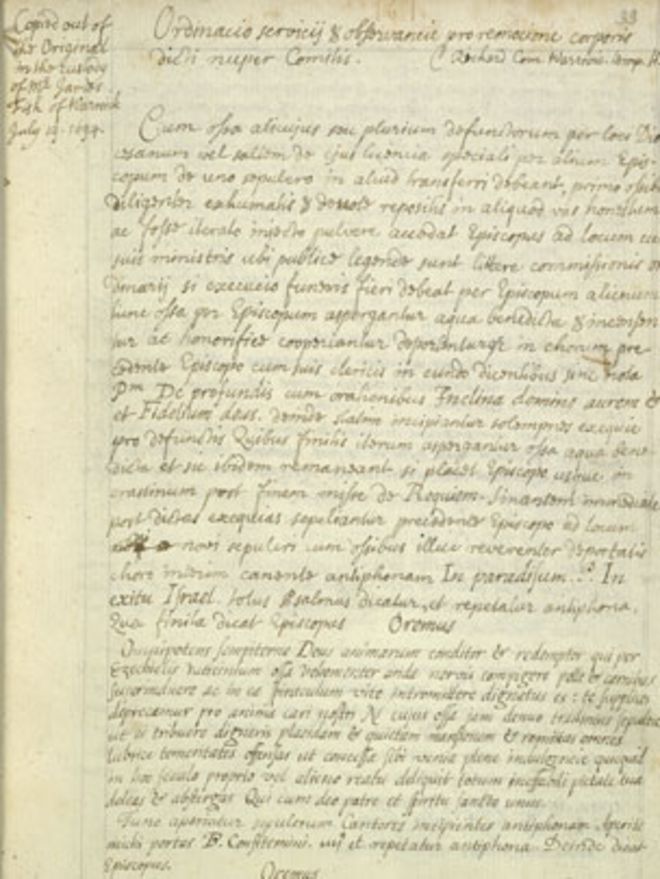 33
Copied out of
the Original
in the custody
of Mr James
Fish of Warwick
July 12. 1694
Ordinacio servicij & observancie pro remocione corporis
dicti nuper Comitis. Richard Com. Warwic.
Cum ossa alicujus seu plurium defunctorum per loci Dio-
cesanum vel saltem de ejus licencia speciali per alium Epis-
copum de uno sepulcro in aliud transferri debeant, primo ossib
diligenter exhumatis & devote repositis in aliquod vas honestum
ac fosse iterato injecto pulvere accedat Episcopus ad locum cu
suis ministris ubi publice legende sunt littere commissionis or
dinarij si execucio funeris fieri debeat per Episcopum alienum
tunc ossa per Episcopum aspergantur aqua benedicta & incensen
tur ac honorifice cooperiantur deportenturqe in chorum pre
cedente Episcopo cum suis clericis in eundo dicentibus sine nota
Pm De profundis cum orationibus Inclina domine aurem &
et Fidelium deus. deinde statim incipiantur solempnes exequie
pro defunctis Quibus finitis iterum aspergantur ossa aqua bene
dicta et sic ibidem remaneant si placet Episcopo usque in
crastinum post finem misse de Requiem. Sinautem immediate
post dictas exequias sepeliantur precedente Episcopo ad locum
novi sepulcri cum ossibus illuc reverenter deportatis
choro interim canente antiphonam In paradisum. Ps In
exitu Israel. totus Psalmus dicatur et repetatur antiphona.
Qua finita dicat Episcopus Oremus
Omnipotens sempiterne Deus animarum conditor & redemptor qui per
Ezechielis vaticinium ossa vehementer arida nervis compingere pelle & carnibus
succrinduere ac in ea spiraculum vite intromittere dignatus es: te supplices
deprecamur pro anima cari nostri N cujus ossa jam denuo tradimus sepulture
ut ei tribuere digneris placidam & quietam mansionem & remittas omnes
lubrice temeritatis offensas ut concessa sibi venia plene indulgencie quicquid
in hoc seculo proprio vel alieno reatu deliquit totum ineffabili pietate tua
deleas & abstergas Qui cum deo patre et spiritu sancto unus.
Tunc aperiatur sepulcrum Cantores incipientes antiphonam Aperite
michi portas Ps. Confitemini. et repetatur antiphona Deinde dicat
Episcopus. Oremus